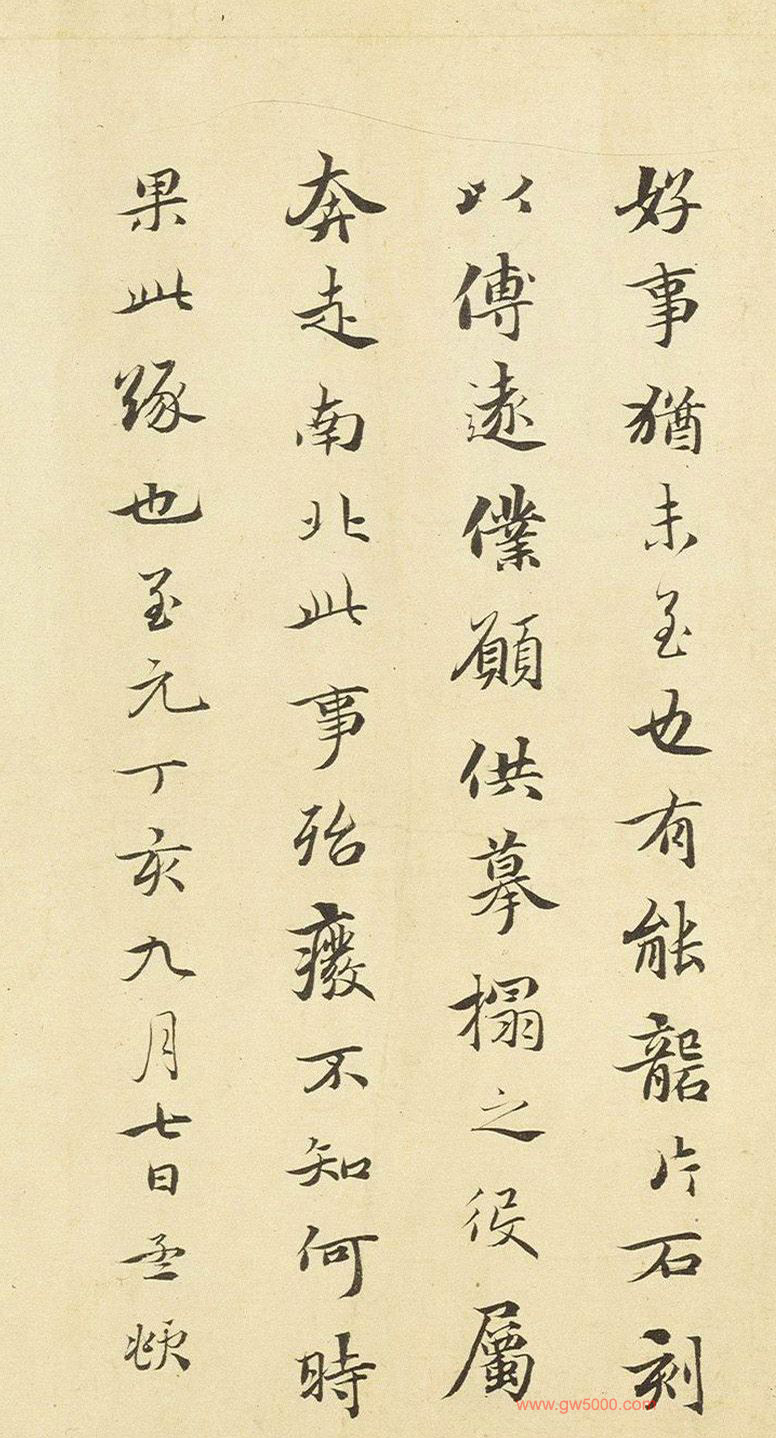 好事猶未至也有能礱片石刻
以傳遠僕願供摹搨之役屬
奔走南北此事殆癈不知何時
果此緣也至元丁亥九月七日孟頫
www.gw5000.com